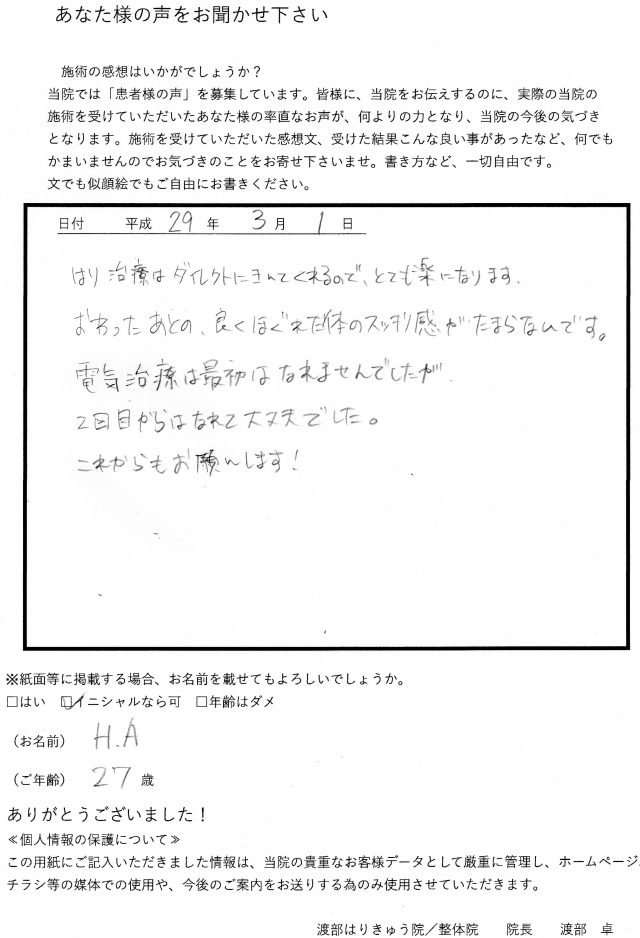 あなた様の声をお聞かせ下さい
施術の感想はいかがでしょうか？
当院では「患者様の声」を募集しています。皆様に、当院をお伝えするのに、実際の当院の
施術を受けていただいたあなた様の率直なお声が、何よりの力となり、当院の今後の気づき
となります。施術を受けていただいた感想文、受けた結果こんな良い事があったなど、何でも
かまいませんのでお気づきのことをお寄せ下さいませ。書き方など、一切自由です。
文でも似顔絵でもご自由にお書きください。
日付 平成 29 年 3 月 1 日
はり治療はダイレクトにきいてくれるので、とても楽になります。
おわったあとの、良くほぐれた体のスッキリ感がたまらないです。
電気治療は最初はなれませんでしたが
2回目からはなれて大丈夫でした。
これからもお願いします！
※紙面等に掲載する場合、お名前を載せてもよろしいでしょうか。
□はい ☑イニシャルなら可 □年齢はダメ
（お名前） H.A
（ご年齢） 27 歳
ありがとうございました！
≪個人情報の保護について≫
この用紙にご記入いただきました情報は、当院の貴重なお客様データとして厳重に管理し、ホームページ、
チラシ等の媒体での使用や、今後のご案内をお送りする為のみ使用させていただきます。
渡部はりきゅう院／整体院 院長 渡部 卓